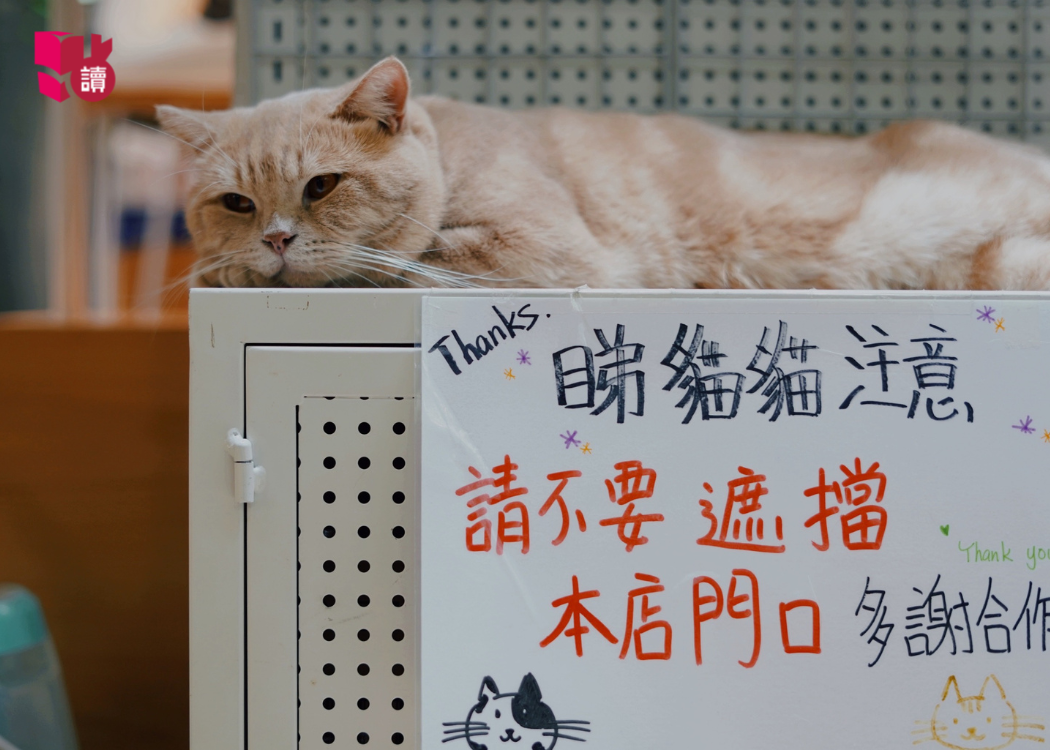 讀
Thanks.
睇貓貓注意
請不要遮擋
Thank you
本店門口 多謝合作